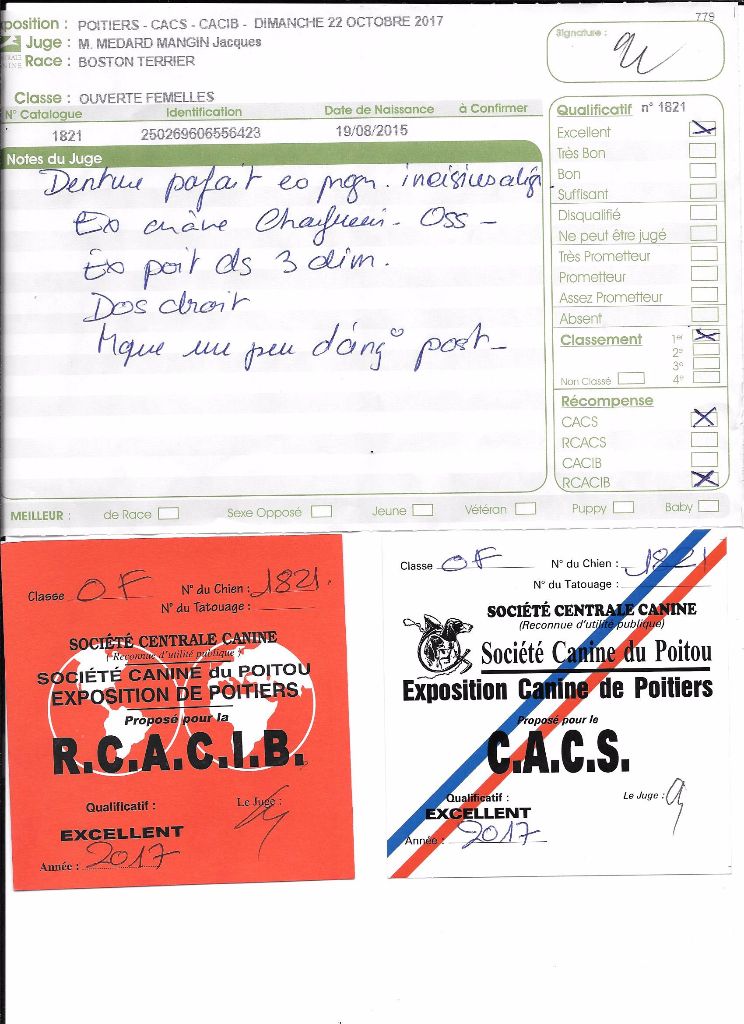 position : POITIERS - CACS - CACIB - DIMANCHE 22 OCTOBRE 2017
779
Juge : M. MEDARD MANGIN Jacques
Signature :
Race : BOSTON TERRIER
Classe : OUVERTE FEMELLES
N° Catalogue Identification Date de Naissance à Confirmer
1821 250269606556423 19/08/2015
Notes du Juge
Denture parfait ex progn. incisives align.
Ex crâne Chanfrein - Oss -
Ex poit ds 3 dim.
Dos droit
Mque un peu d'ang° post -
Qualificatif n° 1821
Excellent
Très Bon
Bon
Suffisant
Disqualifié
Ne peut être jugé
Très Prometteur
Prometteur
Assez Prometteur
Absent
Classement 1er
2e
3e
Non Classé 4e
Récompense
CACS
RCACS
CACIB
RCACIB
MEILLEUR : de Race Sexe Opposé Jeune Vétéran Puppy Baby
Classe OF N° du Chien : 1821.
N° du Tatouage :
SOCIÉTÉ CENTRALE CANINE
(Reconnue d'utilité publique)
SOCIÉTÉ CANINE du POITOU
EXPOSITION DE POITIERS
Proposé pour la
R.C.A.C.I.B.
Qualificatif : Le Juge :
EXCELLENT
Année : 2017
Classe OF N° du Chien : 1821
N° du Tatouage :
SOCIÉTÉ CENTRALE CANINE
(Reconnue d'utilité publique)
Société Canine du Poitou
Exposition Canine de Poitiers
Proposé pour le
C.A.C.S.
Qualificatif : Le Juge :
EXCELLENT
Année : 2017